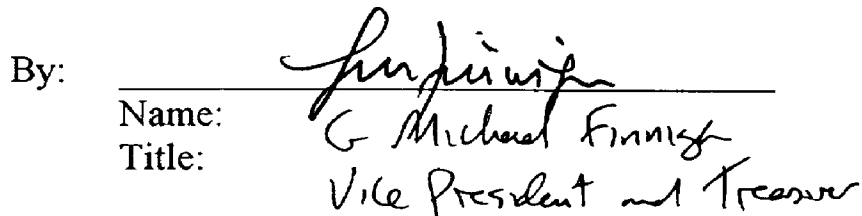 By:
Name: G Michael Finnigan
Title:
Vice President and Treasurer